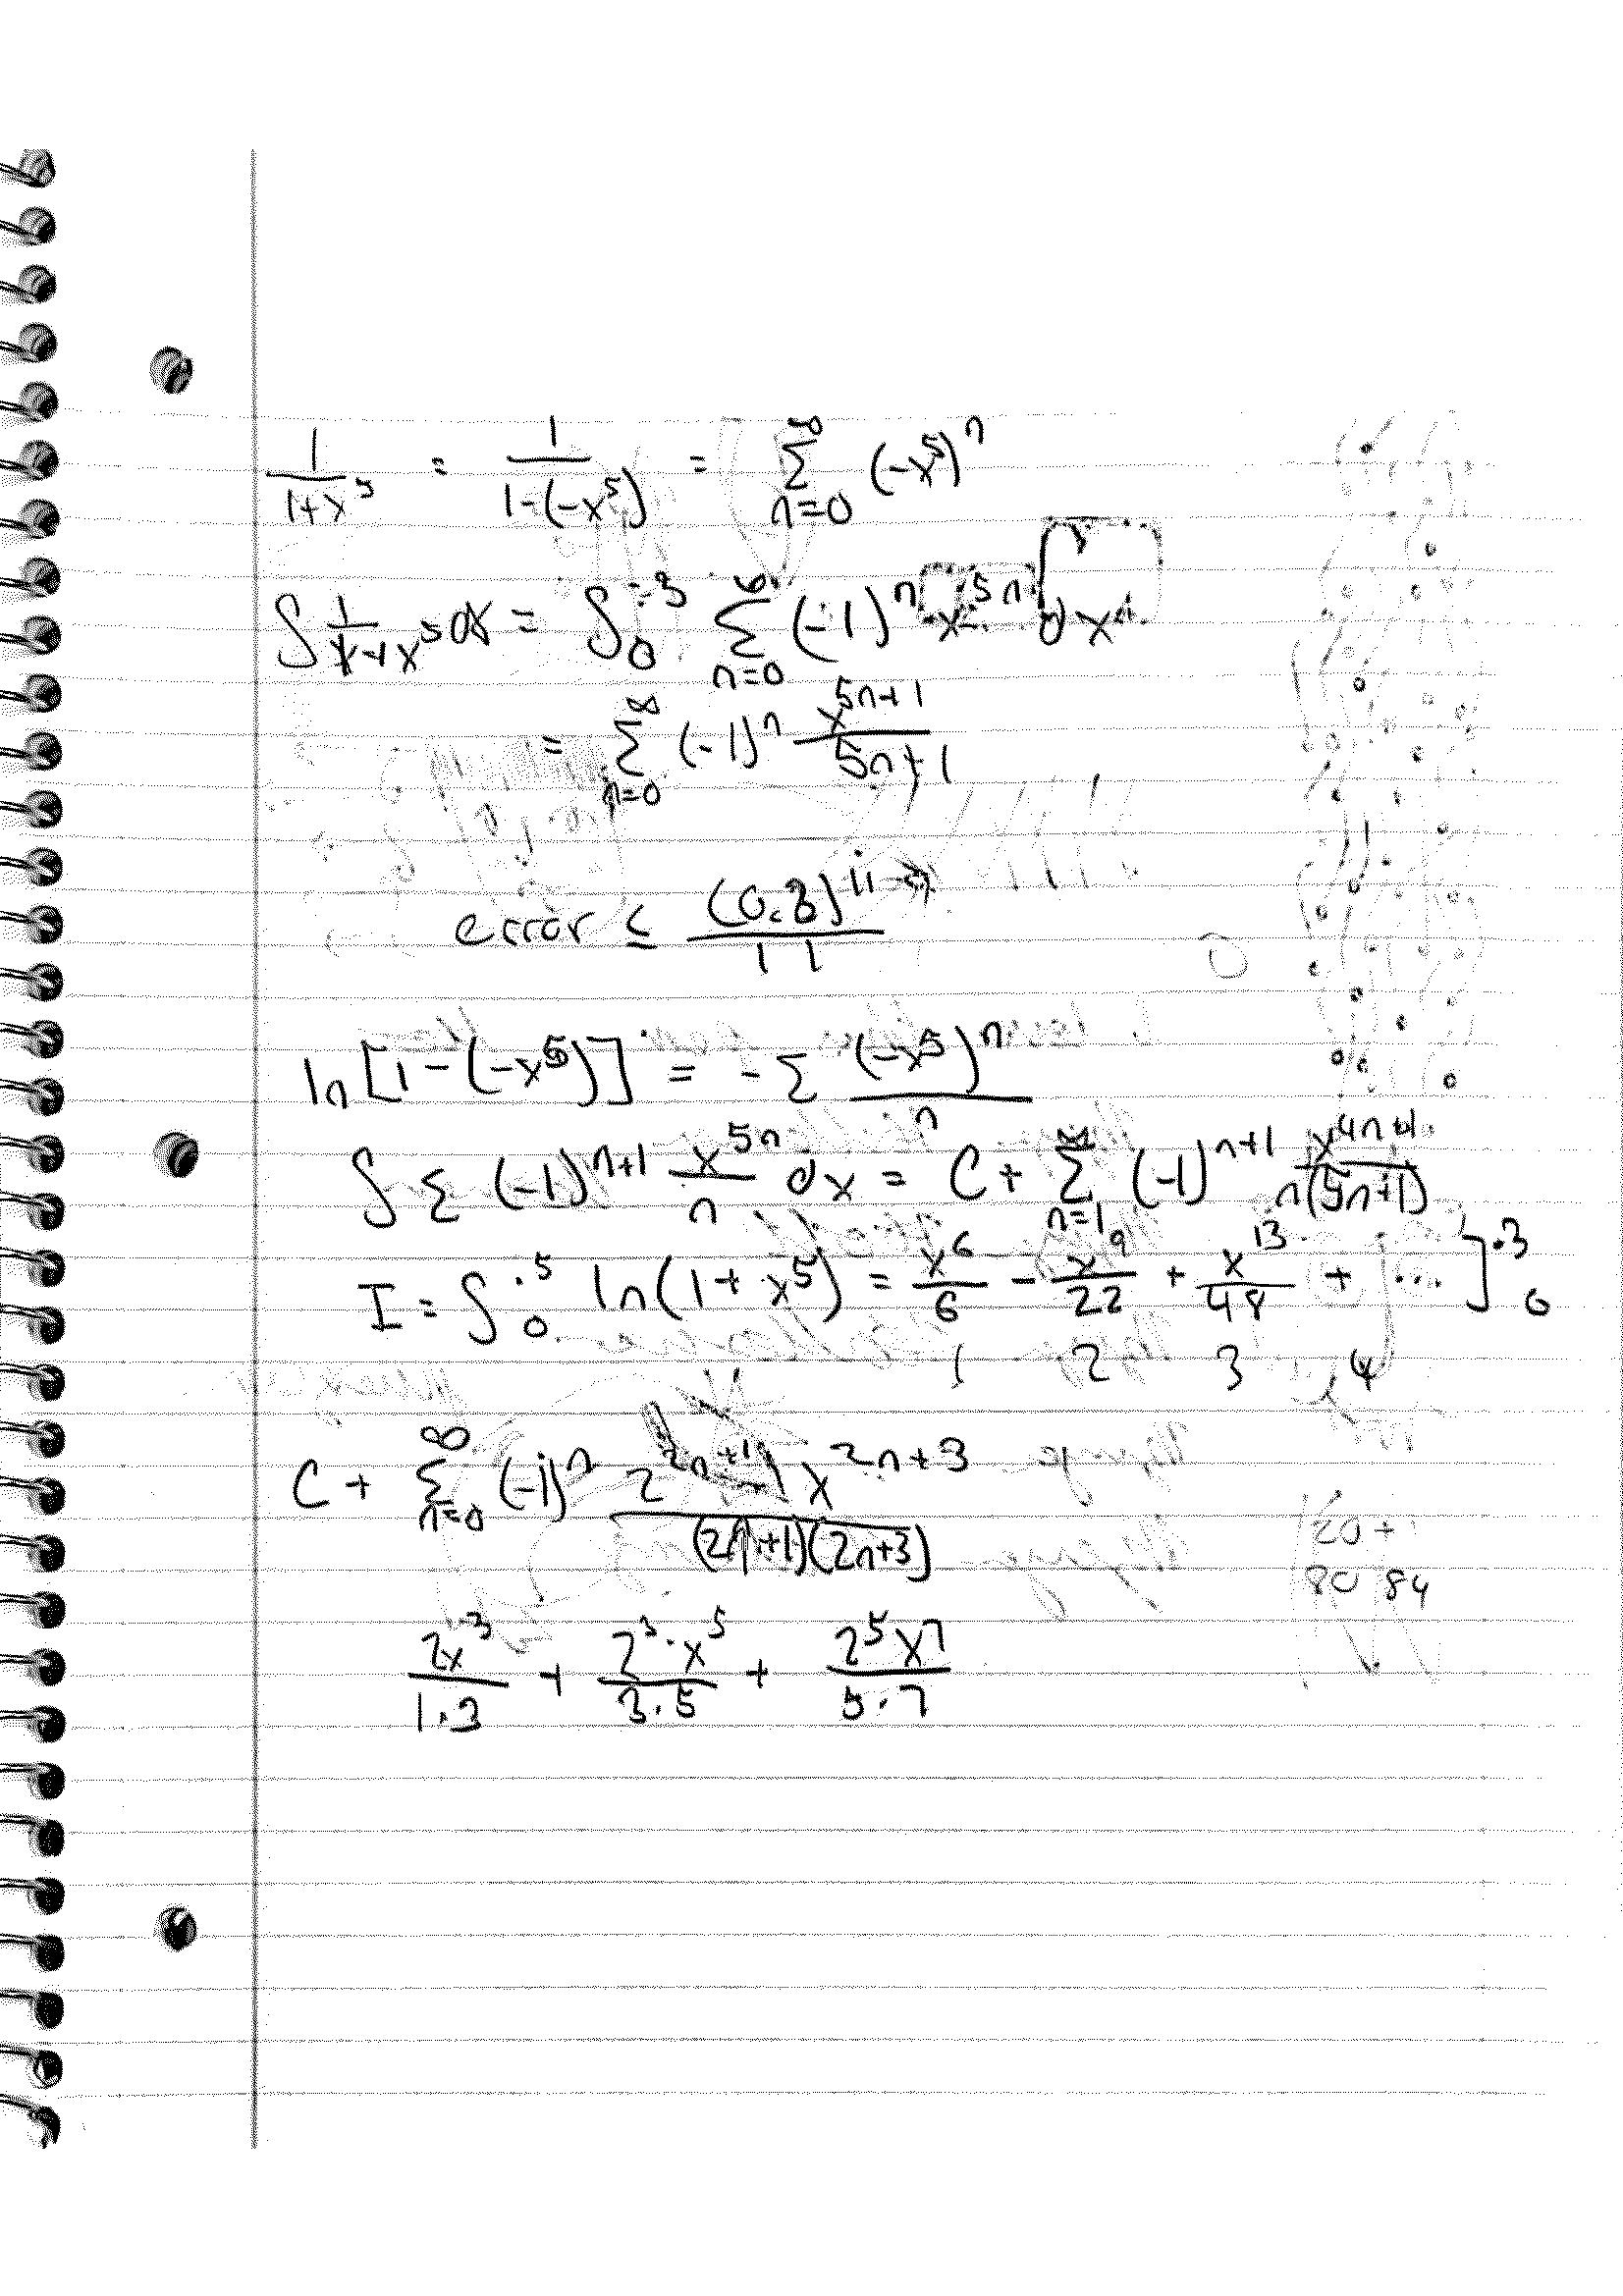 1/(1+x^5) = 1/(1-(-x^5)) = ∑_{n=0}^{∞} (-x^5)^n
∫ 1/(1+x^5) dx = ∫_0^{.3} ∑_{n=0}^{∞} (-1)^n x^{5n} dx
= ∑_{n=0}^{∞} (-1)^n x^{5n+1}/(5n+1)
error ≤ (0.3)^{11}/11
ln[1-(-x^5)] = -∑ (-x^5)^n/n
∫ ∑ (-1)^{n+1} x^{5n}/n dx = C + ∑_{n=1}^{∞} (-1)^{n+1} x^{4n+1}/(n(5n+1))
I = ∫_0^{.5} ln(1+x^5) = x^6/6 - x^9/22 + x^{13}/48 + ... ]_0^{.3}
1 2 3 4
C + ∑_{n=0}^{∞} (-1)^n 2^{2n+1} x^{2n+3}/((2n+1)(2n+3))
20 +
80 84
2x^3/(1·3) + 2^3·x^5/(3·5) + 2^5x^7/(5·7)